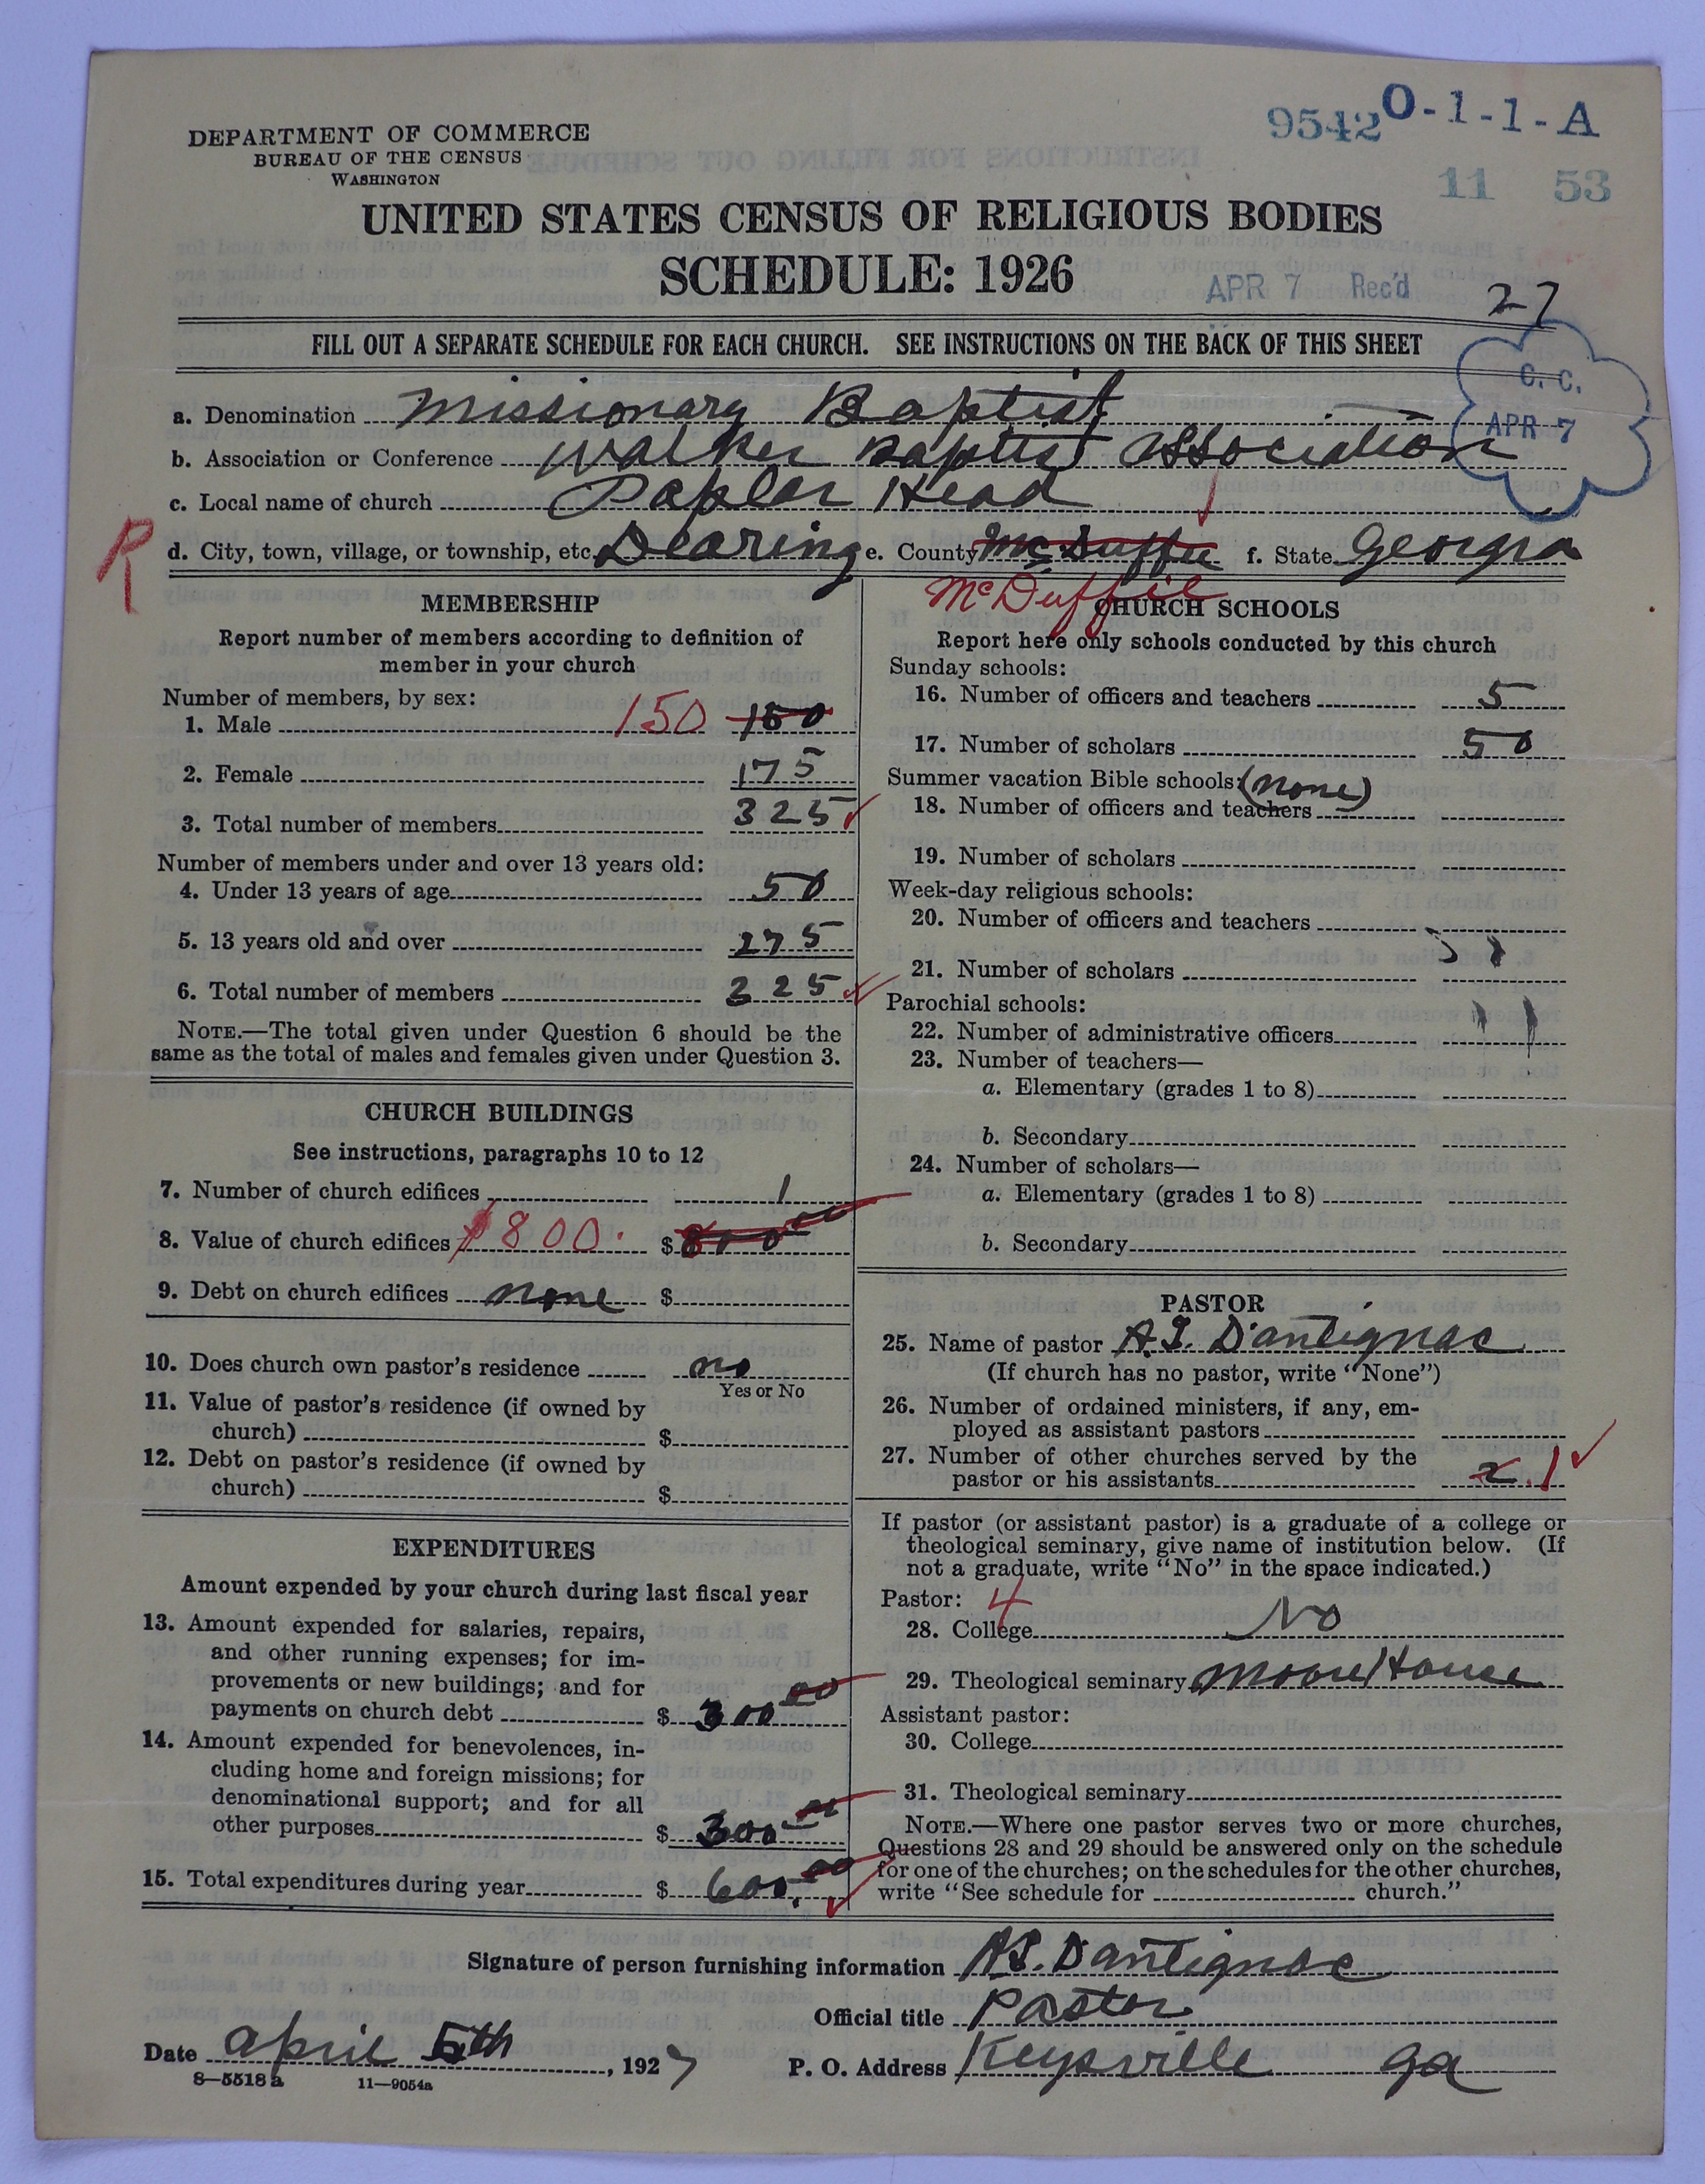 9542 O-1-1-A
11 53
DEPARTMENT OF COMMERCE
BUREAU OF THE CENSUS
WASHINGTON
UNITED STATES CENSUS OF RELIGIOUS BODIES
SCHEDULE: 1926
APR 7 Rec'd 27
FILL OUT A SEPARATE SCHEDULE FOR EACH CHURCH. SEE INSTRUCTIONS ON THE BACK OF THIS SHEET
C. C.
APR 7
a. Denomination Missionary Baptist
b. Association or Conference Walker Baptist Association
c. Local name of church Poplar Head
R
d. City, town, village, or township, etc. Dearing e. County McDuffie f. State Georgia
McDuffie
MEMBERSHIP
Report number of members according to definition of
member in your church
Number of members, by sex:
1. Male 150 150
2. Female 175
3. Total number of members 325
Number of members under and over 13 years old:
4. Under 13 years of age 50
5. 13 years old and over 275
6. Total number of members 325
NOTE.—The total given under Question 6 should be the
same as the total of males and females given under Question 3.
CHURCH BUILDINGS
See instructions, paragraphs 10 to 12
7. Number of church edifices 1
8. Value of church edifices $800. $800 00
9. Debt on church edifices none $
10. Does church own pastor's residence no
Yes or No
11. Value of pastor's residence (if owned by
church) $
12. Debt on pastor's residence (if owned by
church) $
EXPENDITURES
Amount expended by your church during last fiscal year
13. Amount expended for salaries, repairs,
and other running expenses; for im-
provements or new buildings; and for
payments on church debt $ 300 00
14. Amount expended for benevolences, in-
cluding home and foreign missions; for
denominational support; and for all
other purposes $ 300 00
15. Total expenditures during year $ 600.00
CHURCH SCHOOLS
Report here only schools conducted by this church
Sunday schools:
16. Number of officers and teachers 5
17. Number of scholars 50
Summer vacation Bible schools: (none)
18. Number of officers and teachers
19. Number of scholars
Week-day religious schools:
20. Number of officers and teachers
21. Number of scholars
Parochial schools:
22. Number of administrative officers
23. Number of teachers—
a. Elementary (grades 1 to 8)
b. Secondary
24. Number of scholars—
a. Elementary (grades 1 to 8)
b. Secondary
PASTOR
25. Name of pastor A.S. D'antignac
(If church has no pastor, write "None")
26. Number of ordained ministers, if any, em-
ployed as assistant pastors
27. Number of other churches served by the
pastor or his assistants 2. 1
If pastor (or assistant pastor) is a graduate of a college or
theological seminary, give name of institution below. (If
not a graduate, write "No" in the space indicated.)
Pastor: 4
28. College No
29. Theological seminary Moore House
Assistant pastor:
30. College
31. Theological seminary
NOTE.—Where one pastor serves two or more churches,
Questions 28 and 29 should be answered only on the schedule
for one of the churches; on the schedules for the other churches,
write "See schedule for church."
Signature of person furnishing information A.S. Dantignac
Official title Pastor
Date april 5th, 1927 P. O. Address Keysville ga
8—5518a 11—9054a